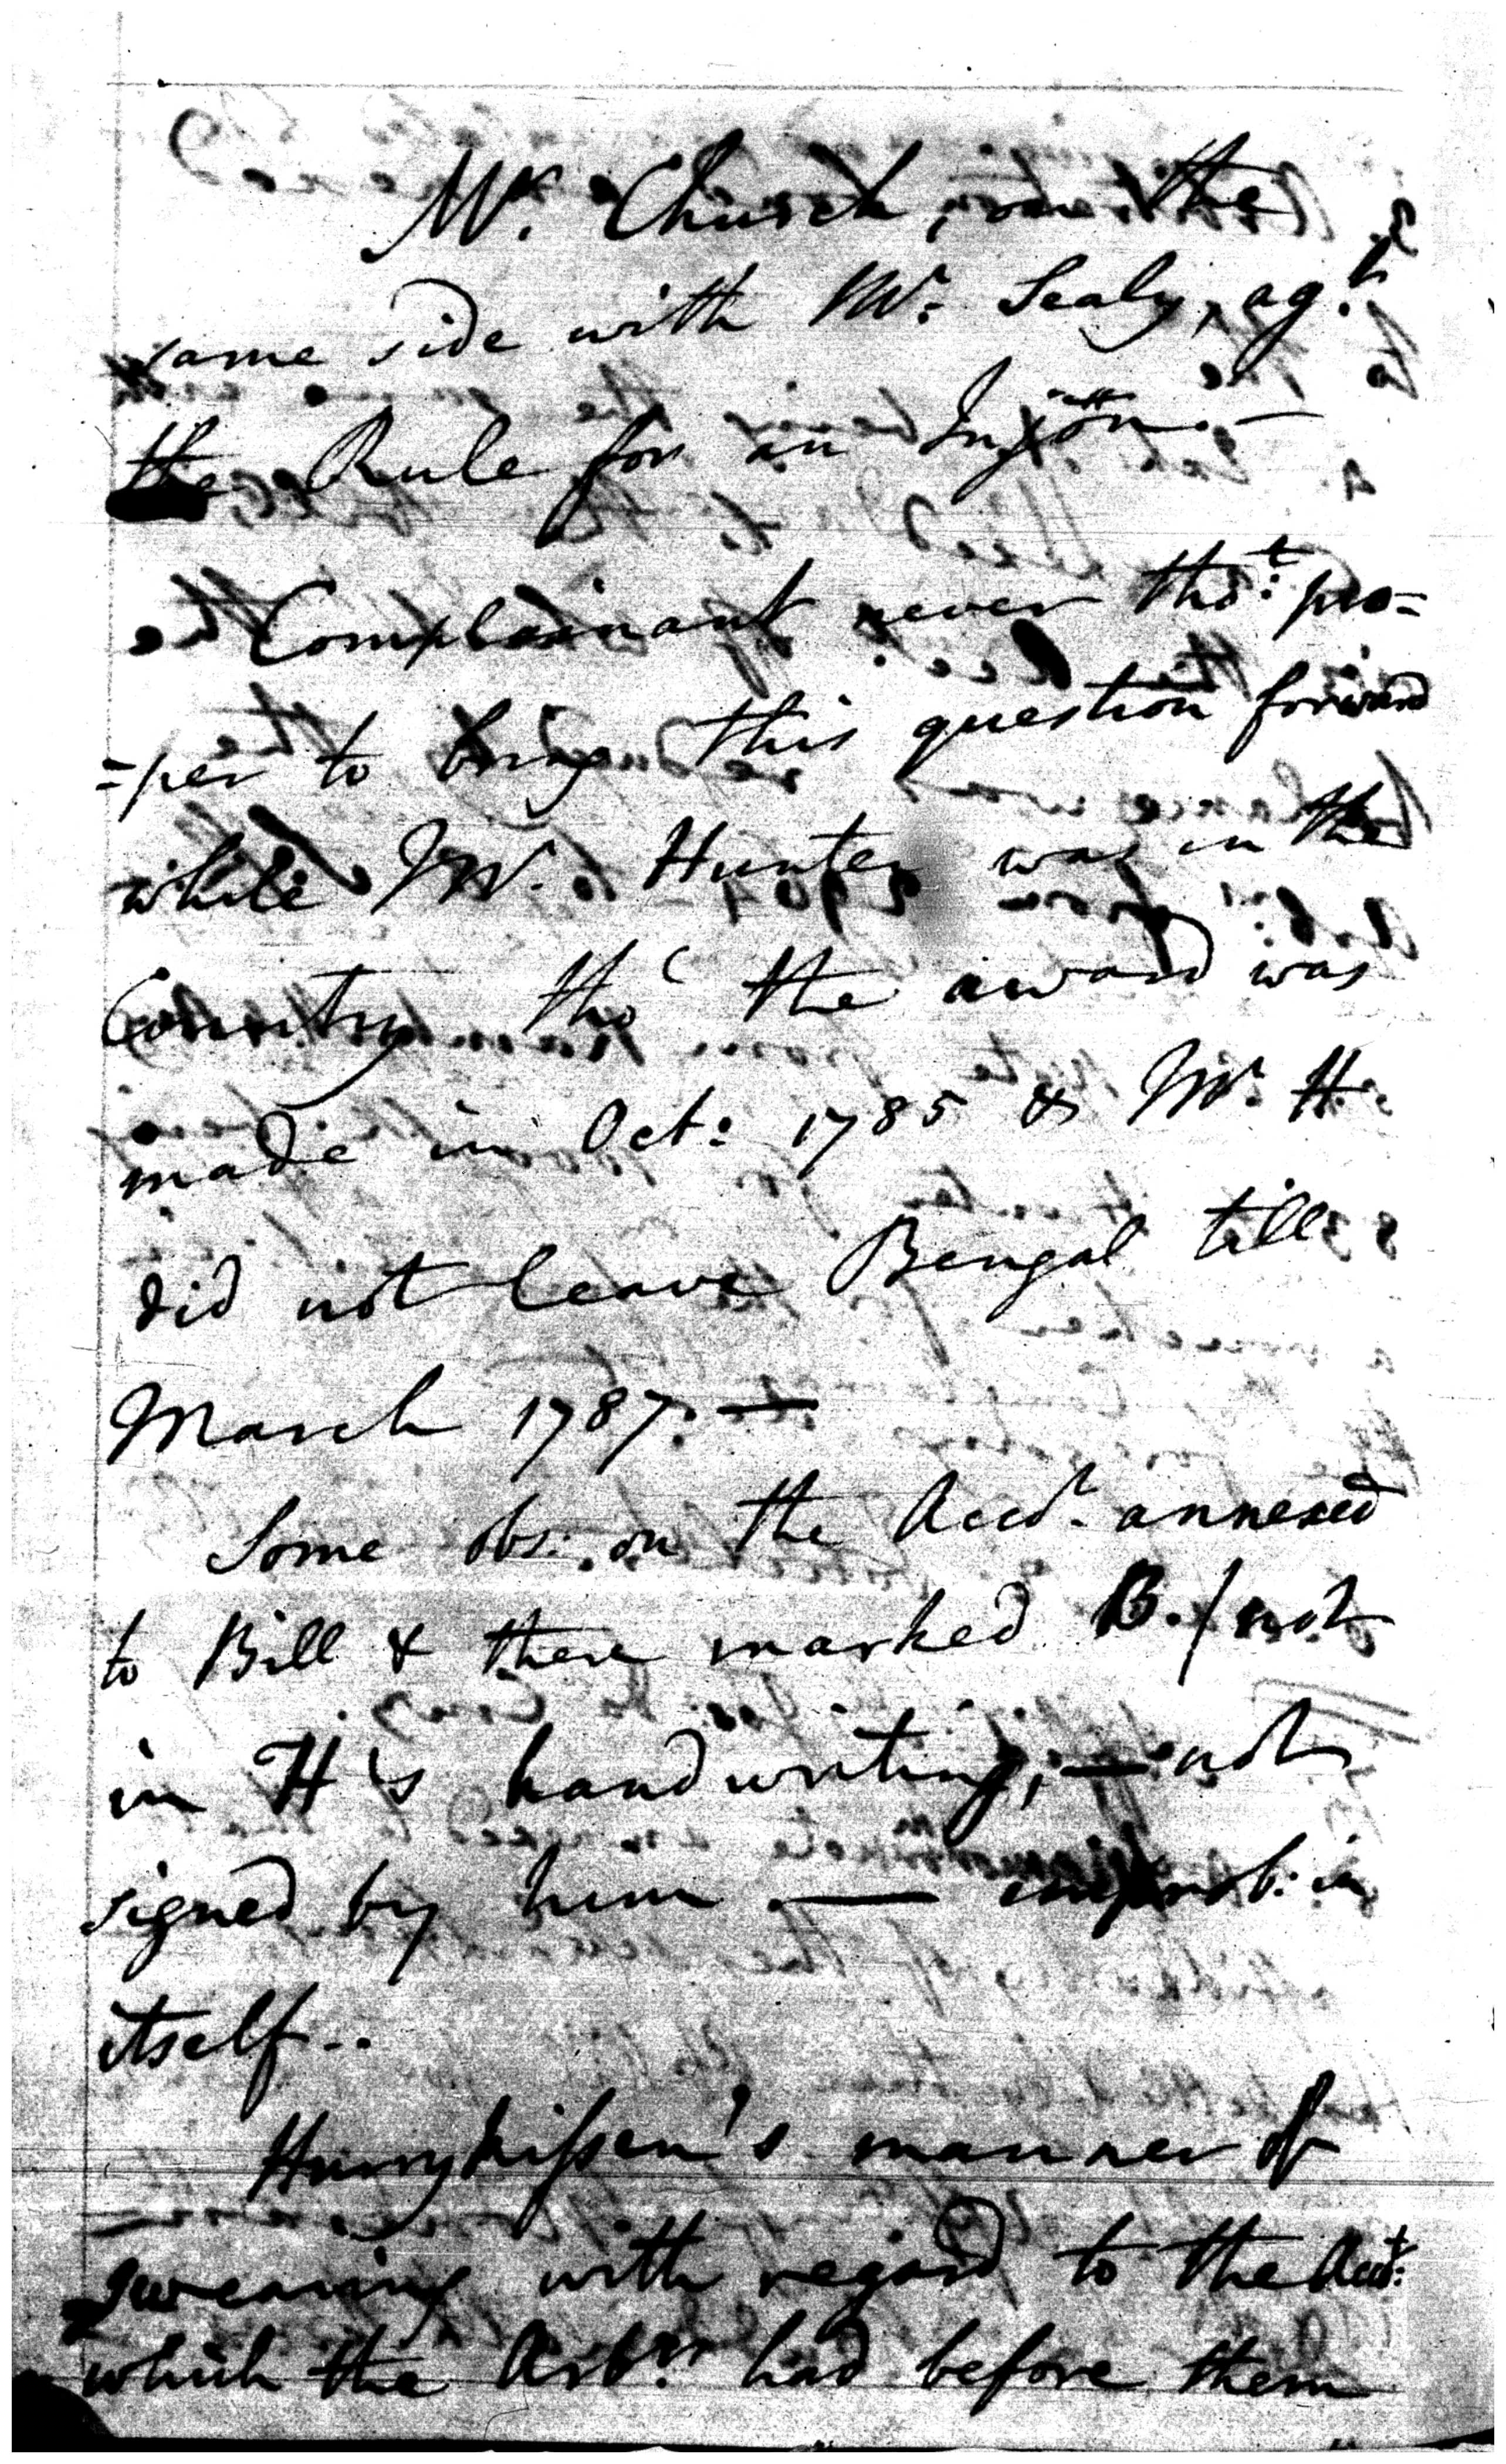 Mr. Church, on the
same side with Mr. Sealy, agt.
the Rule for an Injon.—
Complainant never thot: pro=
=per to bring this question forward
while Mr. Hunter was in the
Country tho' the award was
made in Oct: 1785 & Mr. H.
did not leave Bengal till
March 1787.—
Some obs: on the Accot. annexed
to Bill & there marked B. / not
in H's handwriting, — not
signed by him — improb: in
itself..
Hurrykissen's manner of
swearing with regard to the Acct:
which the Arbrs. had before them